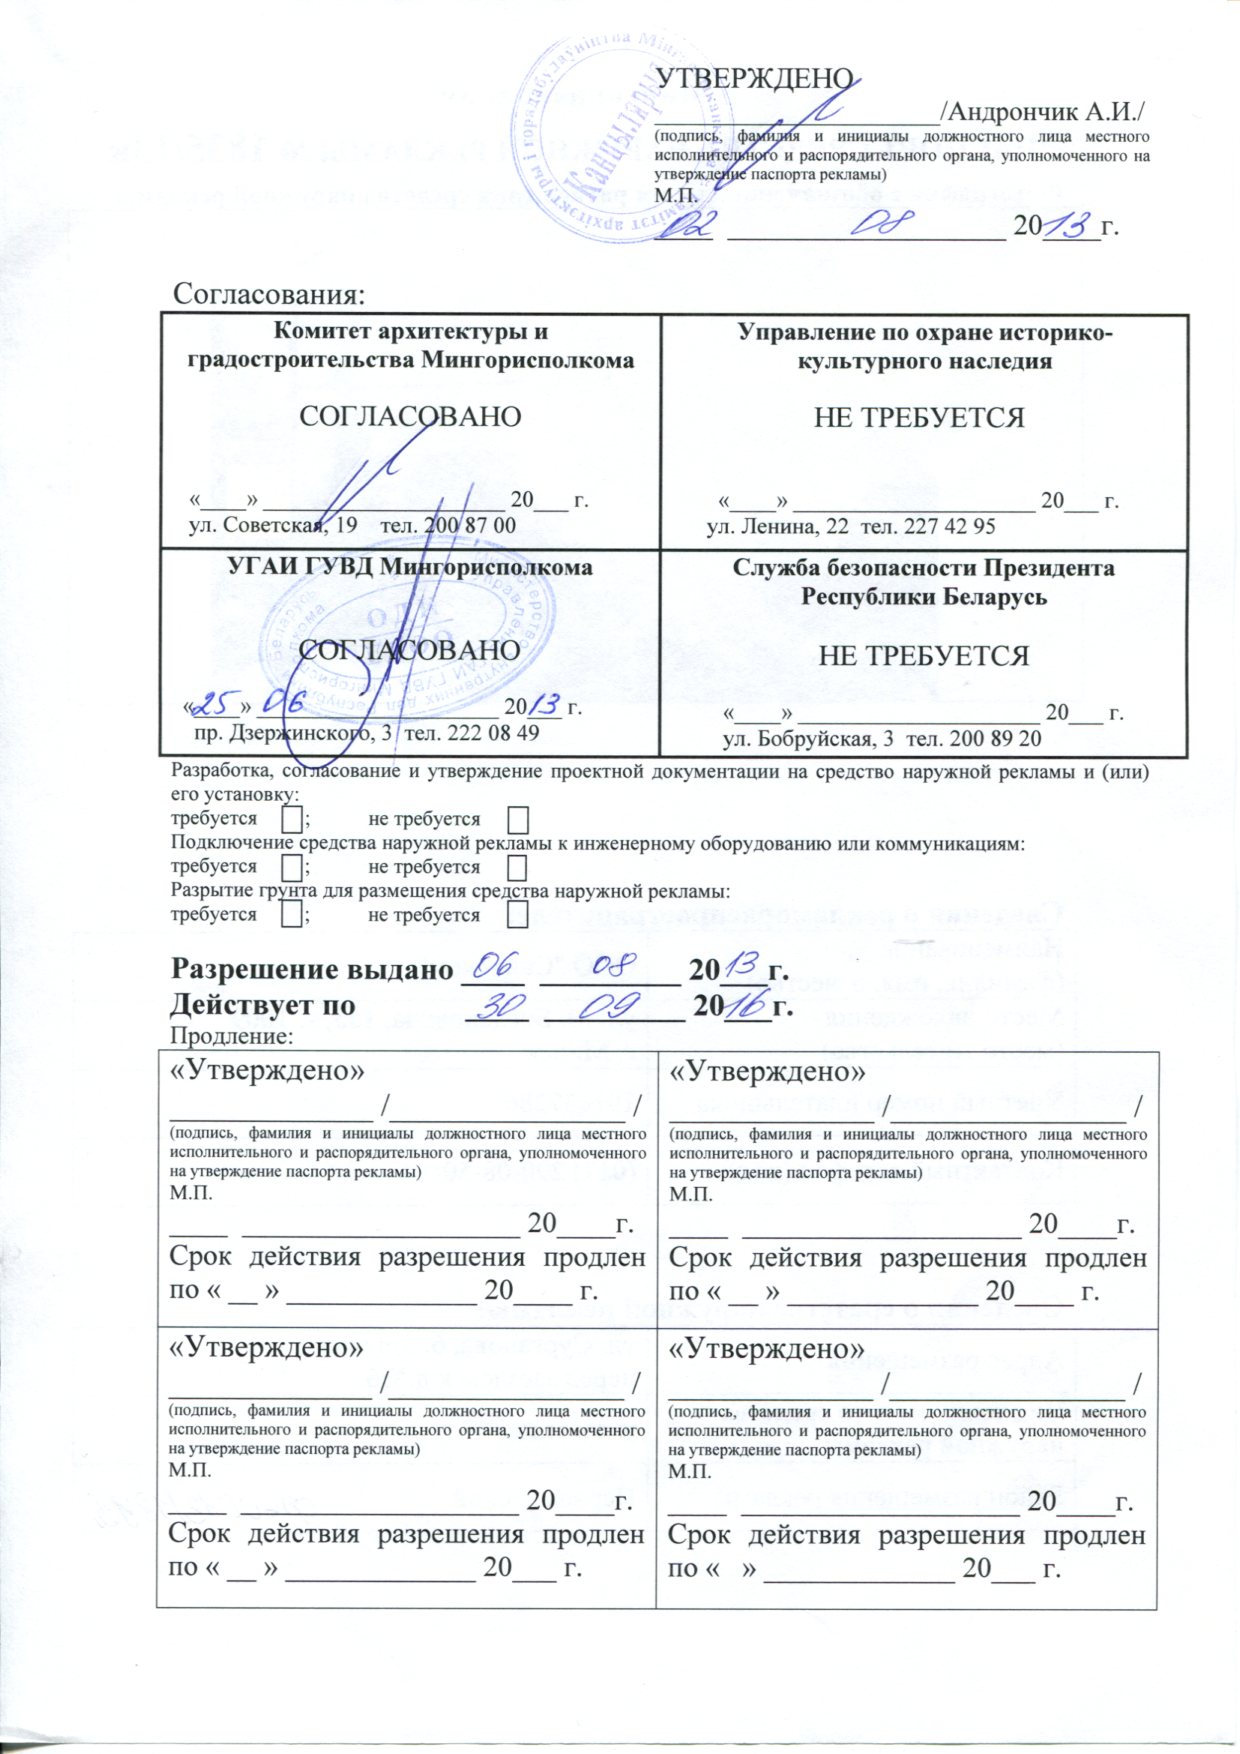 УТВЕРЖДЕНО
____________________/Андрончик А.И./
(подпись, фамилия и инициалы должностного лица местного
исполнительного и распорядительного органа, уполномоченного на
утверждение паспорта рекламы)
М.П.
02 08 2013г.
Канцылярыя
Согласования:
Комитет архитектуры и
градостроительства Мингорисполкома
СОГЛАСОВАНО
«____» ____________________ 20___ г.
ул. Советская, 19 тел. 200 87 00
Управление по охране историко-
культурного наследия
НЕ ТРЕБУЕТСЯ
«____» ____________________ 20___ г.
ул. Ленина, 22 тел. 227 42 95
УГАИ ГУВД Мингорисполкома
СОГЛАСОВАНО
«25» 06 2013 г.
пр. Дзержинского, 3 тел. 222 08 49
Служба безопасности Президента
Республики Беларусь
НЕ ТРЕБУЕТСЯ
«____» ____________________ 20___ г.
ул. Бобруйская, 3 тел. 200 89 20
Разработка, согласование и утверждение проектной документации на средство наружной рекламы и (или)
его установку:
требуется ; не требуется
Подключение средства наружной рекламы к инженерному оборудованию или коммуникациям:
требуется ; не требуется
Разрытие грунта для размещения средства наружной рекламы:
требуется ; не требуется
Разрешение выдано 06 08 2013г.
Действует по 30 09 2016г.
Продление:
«Утверждено»
______________ /________________ /
(подпись, фамилия и инициалы должностного лица местного
исполнительного и распорядительного органа, уполномоченного
на утверждение паспорта рекламы)
М.П.
____ ___________________ 20____г.
Срок действия разрешения продлен
по « __ » _____________ 20____ г.
«Утверждено»
______________ /________________ /
(подпись, фамилия и инициалы должностного лица местного
исполнительного и распорядительного органа, уполномоченного
на утверждение паспорта рекламы)
М.П.
____ ___________________ 20____г.
Срок действия разрешения продлен
по « __ » _____________ 20____ г.
«Утверждено»
______________ /________________ /
(подпись, фамилия и инициалы должностного лица местного
исполнительного и распорядительного органа, уполномоченного
на утверждение паспорта рекламы)
М.П.
____ ___________________ 20____г.
Срок действия разрешения продлен
по « __ » _____________ 20___ г.
«Утверждено»
______________ /________________ /
(подпись, фамилия и инициалы должностного лица местного
исполнительного и распорядительного органа, уполномоченного
на утверждение паспорта рекламы)
М.П.
____ ___________________ 20____г.
Срок действия разрешения продлен
по « » _____________ 20___ г.